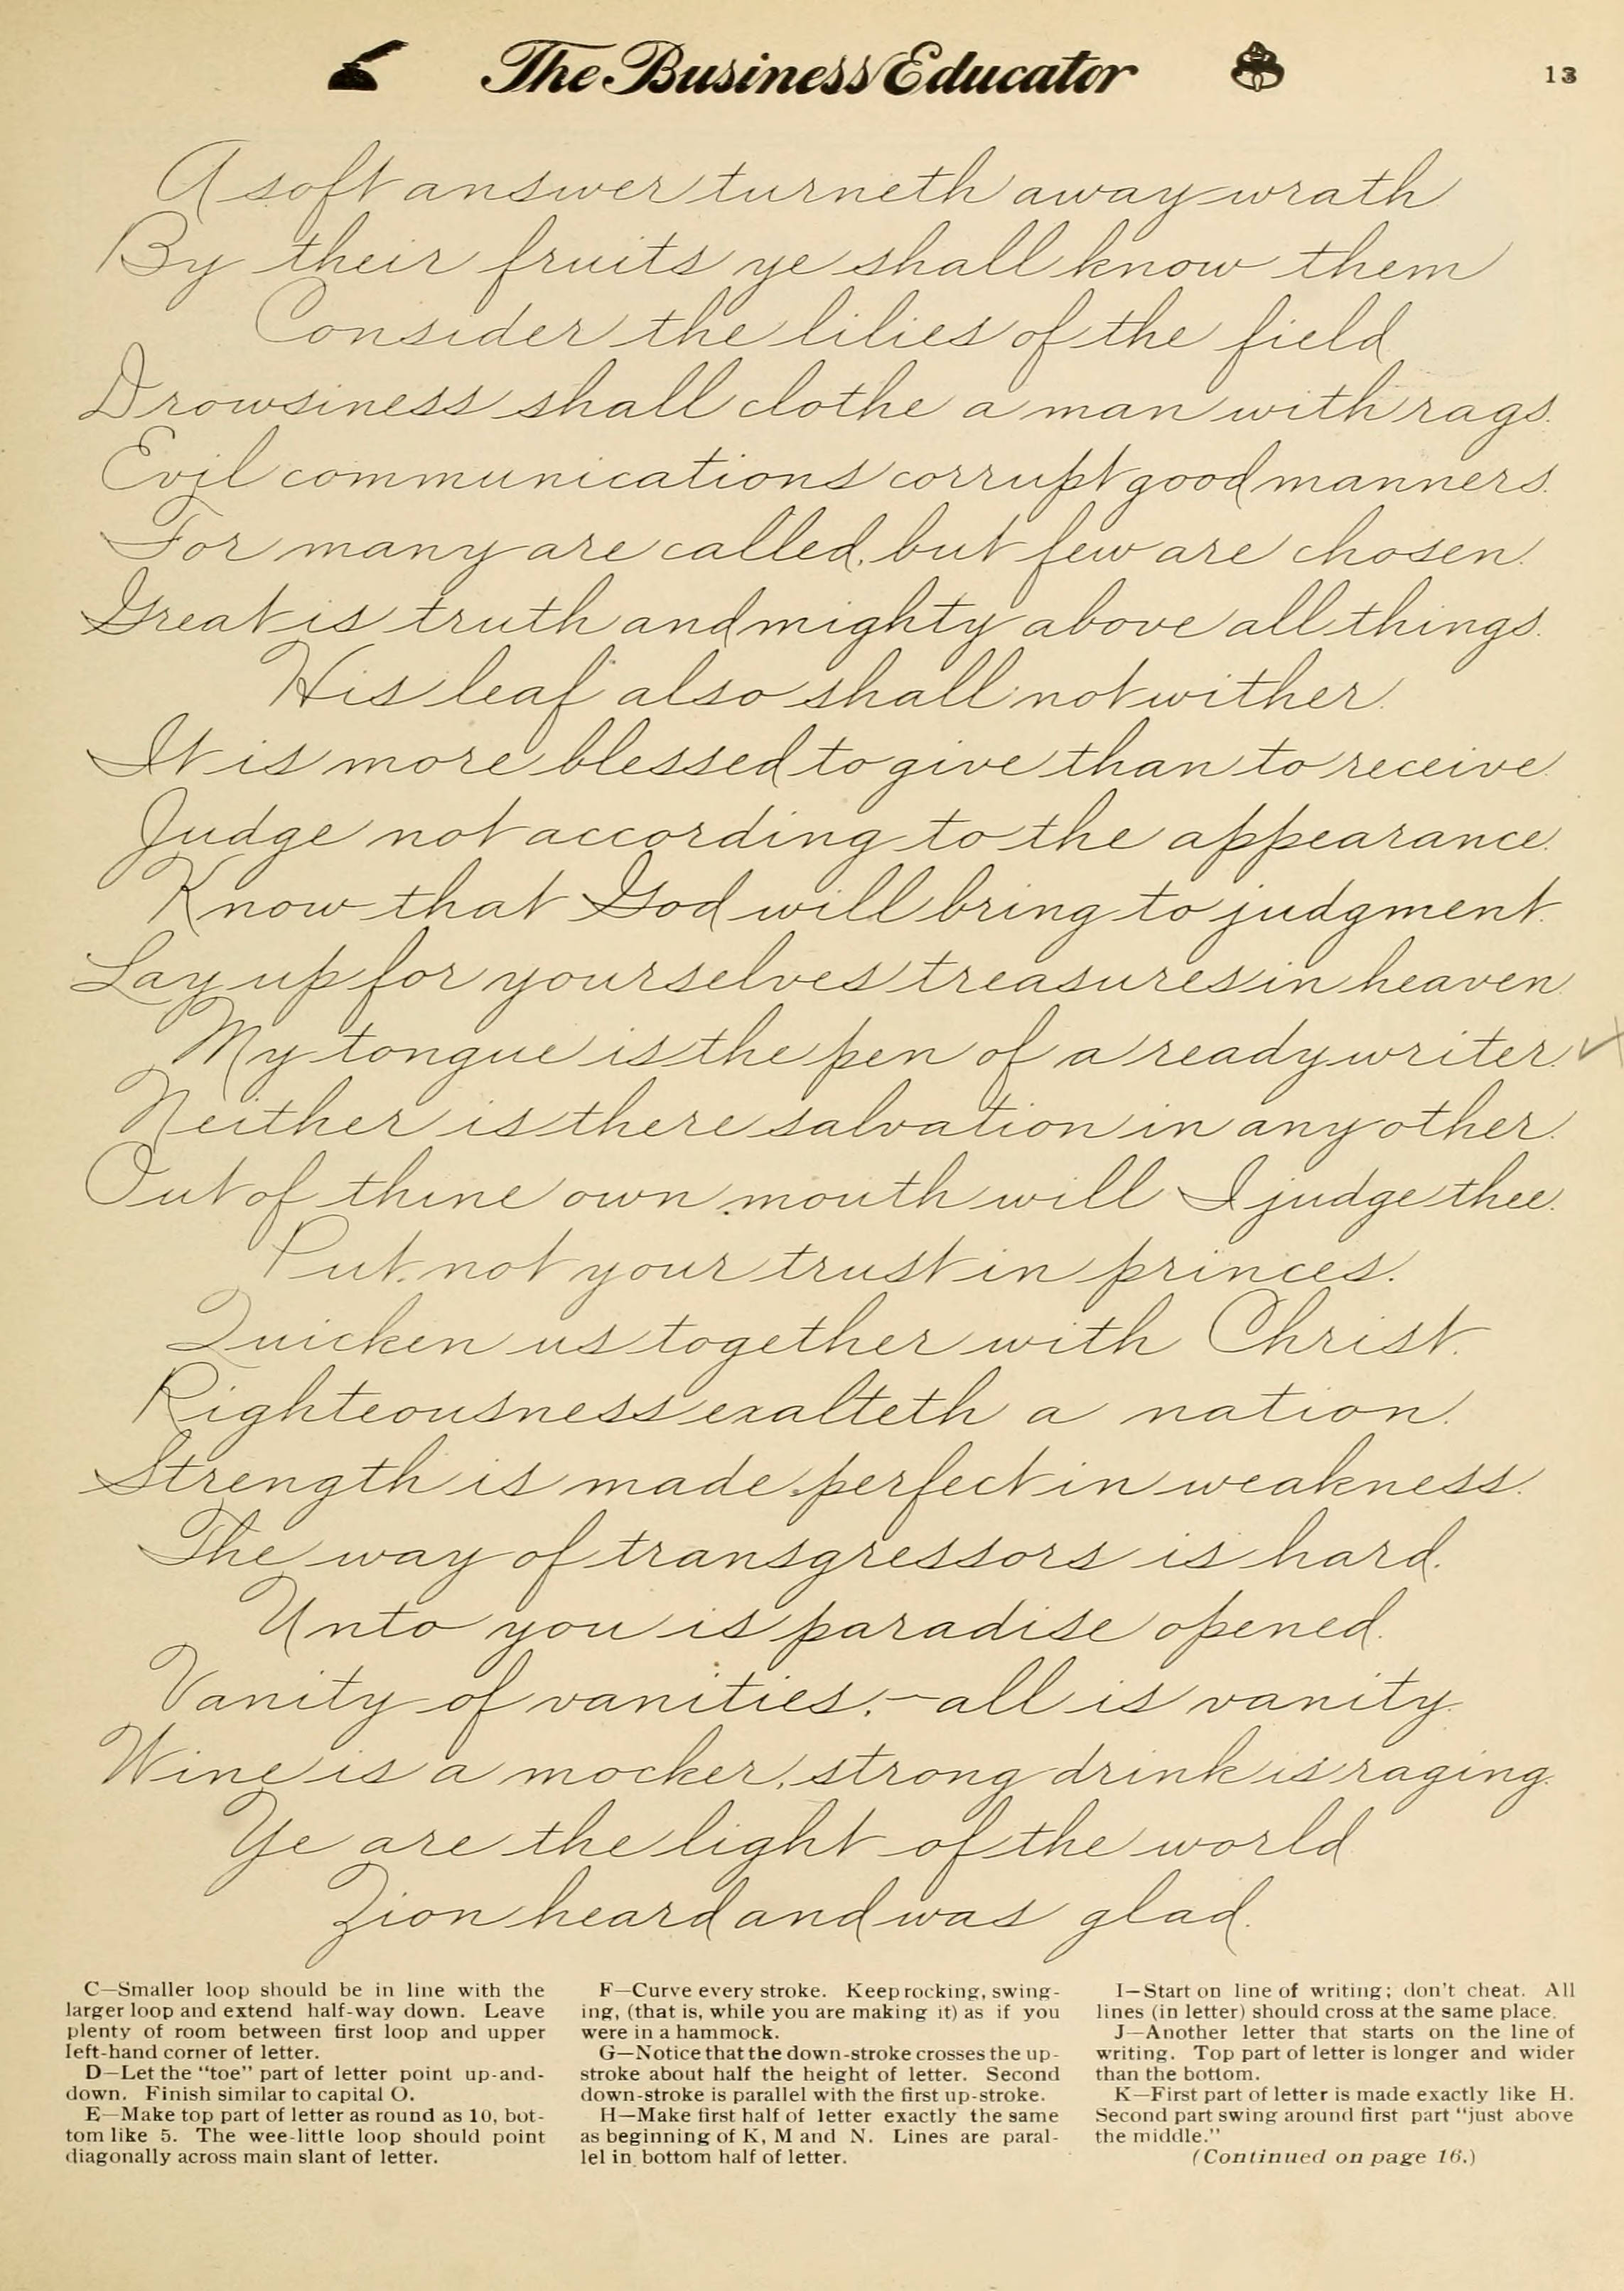 The Business Educator
13
A soft answer turneth away wrath
By their fruits ye shall know them
Consider the lilies of the field
Drowsiness shall clothe a man with rags.
Evil communications corrupt good manners.
For many are called, but few are chosen.
Great is truth and mighty above all things.
His leaf also shall not wither.
It is more blessed to give than to receive.
Judge not according to the appearance.
Know that God will bring to judgment.
Lay up for yourselves treasures in heaven.
My tongue is the pen of a ready writer.
Neither is there salvation in any other.
Out of thine own mouth will I judge thee.
Put not your trust in princes.
Quicken us together with Christ.
Righteousness exalteth a nation.
Strength is made perfect in weakness.
The way of transgressors is hard.
Unto you is paradise opened.
Vanity of vanities,—all is vanity.
Wine is a mocker, strong drink is raging.
Ye are the light of the world
Zion heard and was glad.
C—Smaller loop should be in line with the
larger loop and extend half-way down. Leave
plenty of room between first loop and upper
left-hand corner of letter.
D—Let the "toe" part of letter point up-and-
down. Finish similar to capital O.
E—Make top part of letter as round as 10, bot-
tom like 5. The wee-little loop should point
diagonally across main slant of letter.
F—Curve every stroke. Keep rocking, swing-
ing, (that is, while you are making it) as if you
were in a hammock.
G—Notice that the down-stroke crosses the up-
stroke about half the height of letter. Second
down-stroke is parallel with the first up-stroke.
H—Make first half of letter exactly the same
as beginning of K, M and N. Lines are paral-
lel in bottom half of letter.
I—Start on line of writing; don't cheat. All
lines (in letter) should cross at the same place.
J—Another letter that starts on the line of
writing. Top part of letter is longer and wider
than the bottom.
K—First part of letter is made exactly like H.
Second part swing around first part "just above
the middle."
(Continued on page 16.)